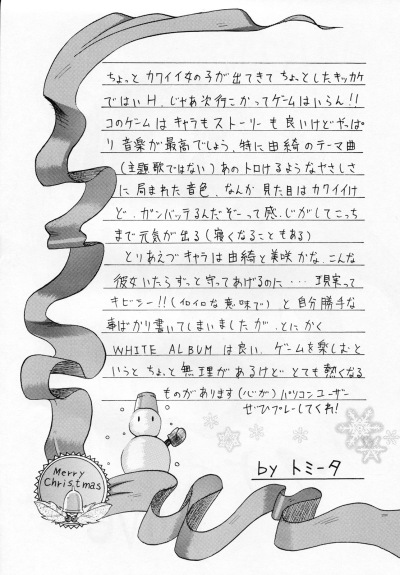 ちょっと カワイイ女の子が出てきて ちょっとしたキッカケ
ではいH、じゃあ次行こかってゲームはいらん!!
コのゲームは キャラもストーリーも良いけど やっぱ
り 音楽が最高でしょう、特に由綺のテーマ曲
(主題歌ではない) あのトロけるようなやさしさ
に 包まれた音色、なんか 見た目はカワイイけ
ど、ガンバッテるんだぞーって感じがしてこっち
まで元気が出る(寝くなることもある)
とりあえづ キャラは由綺と美咲かな、こんな
彼女いたら ずっと守ってあげるのに… 現実って
キビシー!!(イロイロな意味で) と自分勝手な
事ばかり書いてしまいましたが、とにかく
WHITE ALBUM は良い、ゲームを楽しむと
いうとちょっと無理があるけど とても熱くなる
ものがあります(心が) パソコンユーザー
ぜひプレーしてくれ!
by トミータ
Merry
Christmas